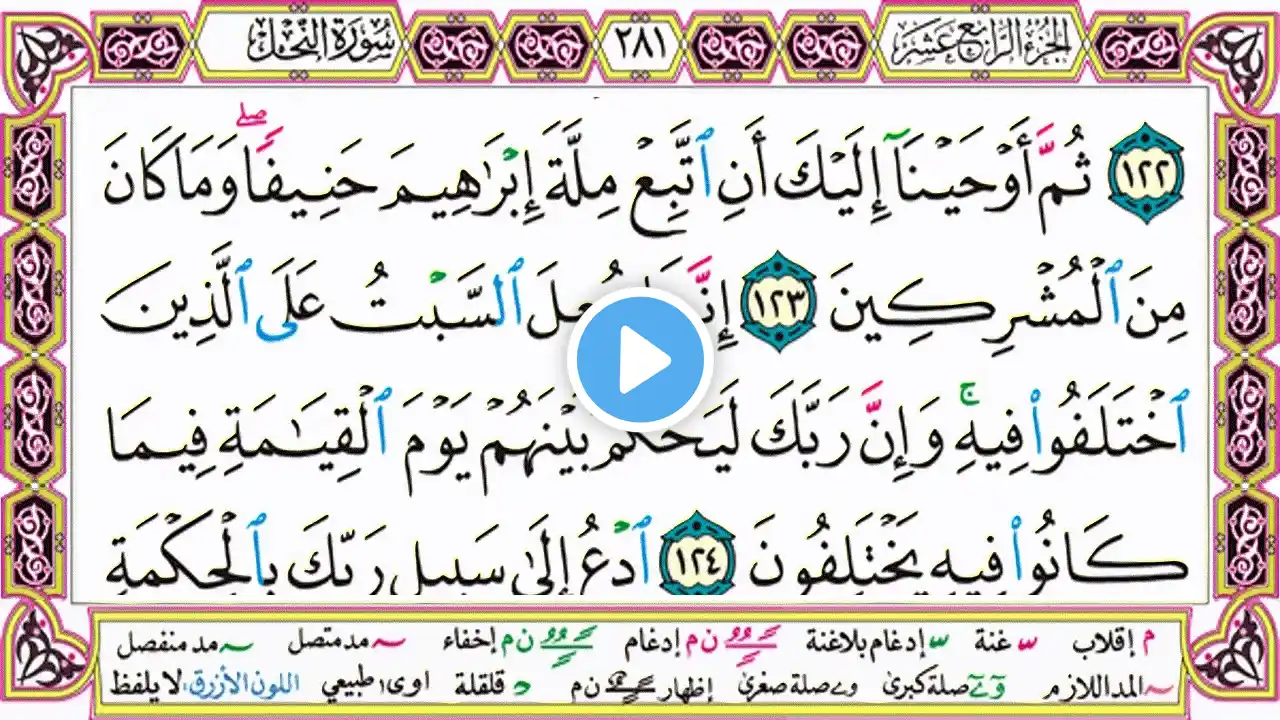 الجزء الرابع عشر ٢٨١ سورة النحل
١٢٢ ثُمَّ أَوْحَيْنَآ إِلَيْكَ أَنِ ٱتَّبِعْ مِلَّةَ إِبْرَٰهِيمَ حَنِيفًا ۖ وَمَا كَانَ
مِنَ ٱلْمُشْرِكِينَ ١٢٣ ٱلسَّبْتُ عَلَى ٱلَّذِينَ
ٱخْتَلَفُوا۟ فِيهِ ۚ وَإِنَّ رَبَّكَ لَيَحْكُمُ بَيْنَهُمْ يَوْمَ ٱلْقِيَـٰمَةِ فِيمَا
كَانُوا۟ فِيهِ يَخْتَلِفُونَ ١٢٤ ٱدْعُ إِلَىٰ سَبِيلِ رَبِّكَ بِٱلْحِكْمَةِ
م إقلاب غنة إدغام بلاغنة ن م إدغام ن م إخفاء مد متصل مد منفصل
المد اللازم صلة كبرى صلة صغرى إظهار ن م قلقلة اوى طبيعي اللون الأزرق: لا يلفظ